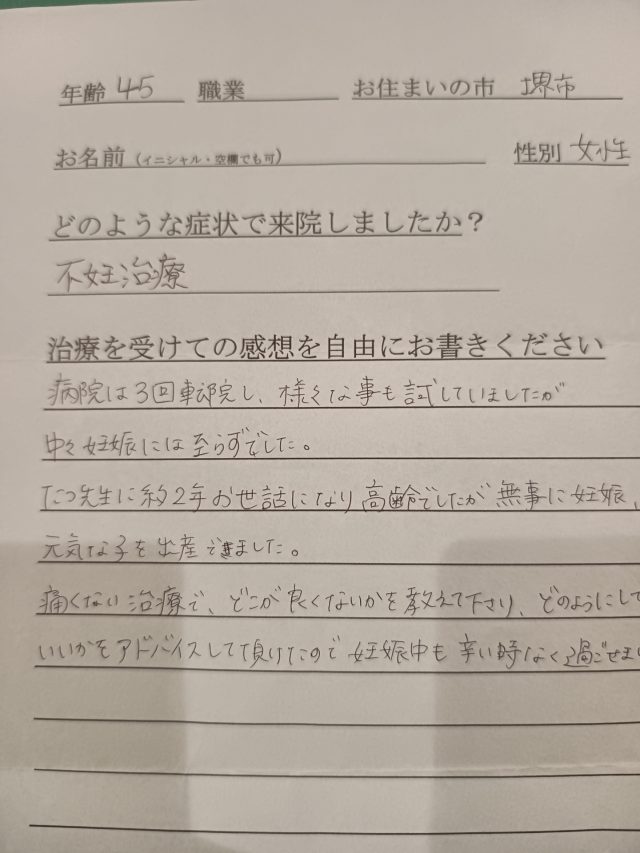 年齢 45 職業 お住まいの市 堺市
お名前（イニシャル・空欄でも可） 性別 女性
どのような症状で来院しましたか？
不妊治療
治療を受けての感想を自由にお書きください
病院は3回転院し、様々な事も試していましたが
中々妊娠には至らずでした。
たつ先生に約2年お世話になり高齢でしたが無事に妊娠、
元気な子を出産できました。
痛くない治療で、どこが良くないかを教えて下さり、どのようにして
いいかをアドバイスして頂けたので妊娠中も辛い時なく過ごせま